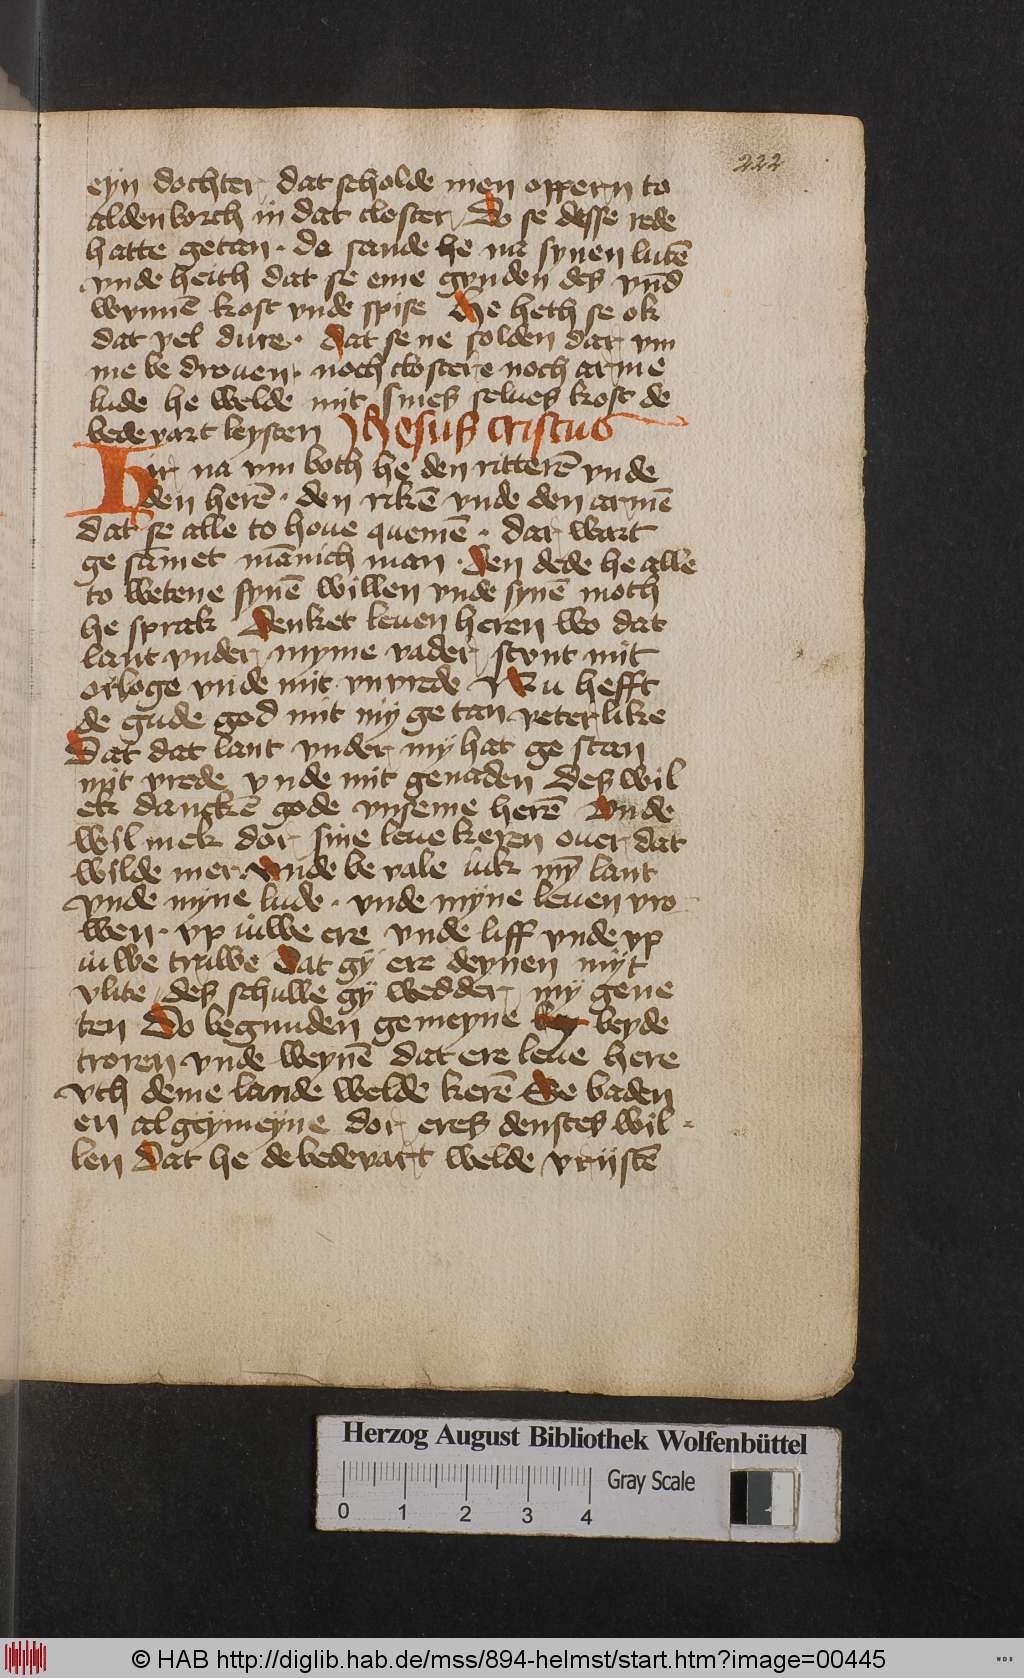 222
eyn dochter dat scholde men offern to
aldenborch in dat closter Do se desse rede
hatte getan · do sande he na synen lutē
vnde heith dat se eme gynden des vnd
wynnē kost vnde spise He heth se ok
dat vel dure · dat se ne solden dar vm
me be droven · noch clostere noch arme
lude he welde mit sines selues kost de
bedevart leysten Jhesus cristus
Hir na vm both he den ritterē vnde
den herē · den rikē vnde den armē
dat se alle to houe quemē · dar wart
ge samet mānich man · den dede he alle
to wetene synē willen vnde synē moth
he sprak Denket leuen heren wo dat
lant vnder myme vader stvnt mit
orloge vnde mit vnvrede Nu hefft
de gude god mit mÿ ge tan veterlike
Dat dat lant vnder mÿ hat ge stan
mit vrede vnde mit genaden Des wil
ek danckē gode vnseme herē Vnde
wil mek dor sine leue keren ouer dat
wilde mer Vnde be vale iuk mÿ lant
vnde mÿne lude · vnde mÿne leuen vro
wen · vp iuwe ere vnde liff vnde vp
iuwe truwe Dat gÿ ere deynen mÿt
vlite des schulle gÿ wedder mÿ gene
ten Do begunden gemeyne beyde
troren vnde weynē dat ere leue here
vth deme lande welde kerē Se baden
en al geymeÿne dor eres denstes wil
len Dat he de bedevart welde vristē
Herzog August Bibliothek Wolfenbüttel
Gray Scale
0 1 2 3 4
© HAB http://diglib.hab.de/mss/894-helmst/start.htm?image=00445